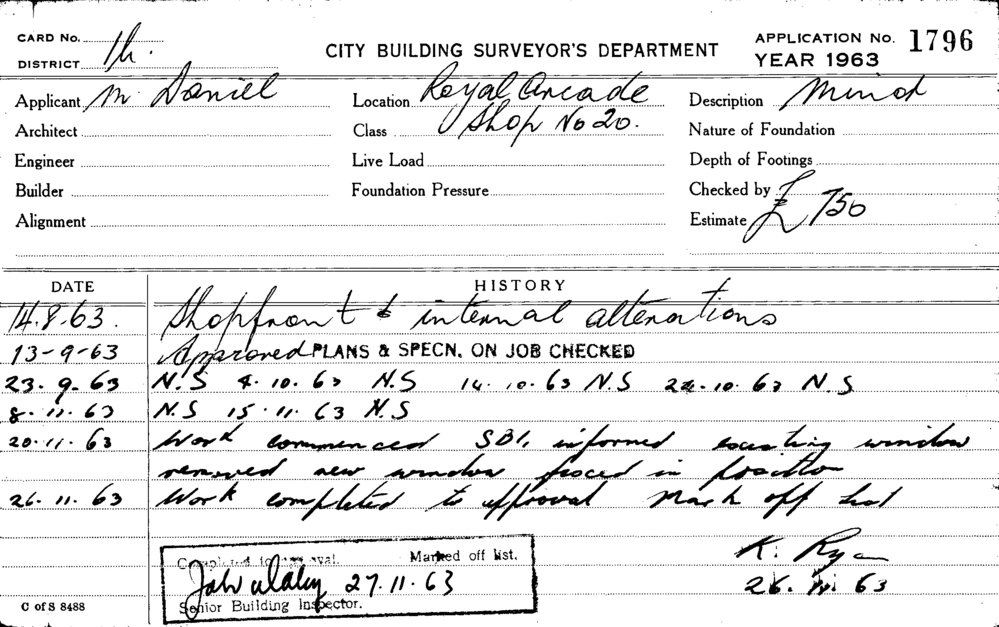 CARD No. 1h.
DISTRICT
CITY BUILDING SURVEYOR'S DEPARTMENT
APPLICATION No. 1796
YEAR 1963
Applicant M Daniel
Location Royal Arcade
Description Minor
Architect
Class Shop No 20.
Nature of Foundation
Engineer
Live Load
Depth of Footings
Builder
Foundation Pressure
Checked by
Alignment
Estimate £ 750
DATE HISTORY
14.8.63. Shopfront & internal alterations
13-9-63 Approved PLANS & SPECN. ON JOB CHECKED
23.9.63 N.S 4.10.63 N.S 14.10.63 N.S 24.10.63 N.S
8.11.63 N.S 15.11.63 N.S
20.11.63 Work commenced SBI. informed existing window
removed new window placed in position
26.11.63 Work completed to approval Mark off list
K. Ryan
26.11.63
Completed to approval. Marked off list.
27.11.63
Senior Building Inspector.
C of S 8488